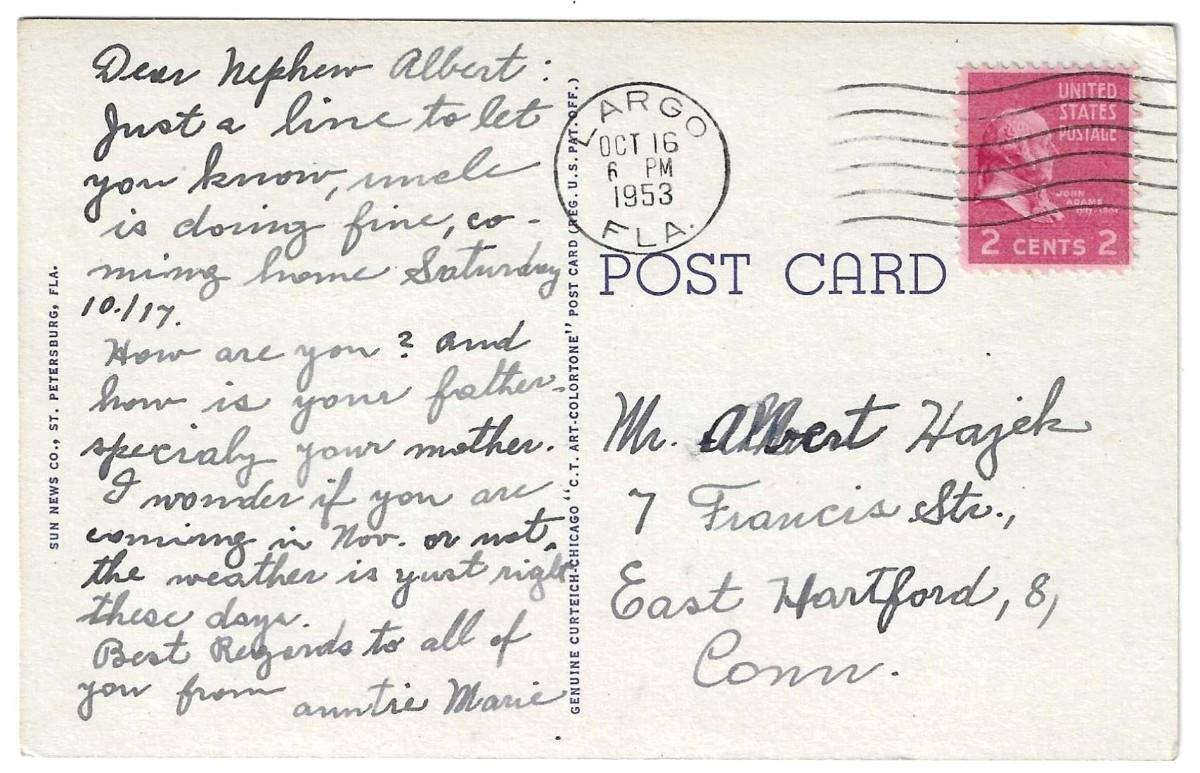 Dear Nephew Albert:
Just a line to let
you know, uncle
is doing fine, co-
ming home Saturday
10./17.
How are you? and
how is your father-
specialy your mother.
I wonder if you are
coming in Nov. or not,
the weather is yust right
these days.
Best Regards to all of
you from auntie Marie
SUN NEWS CO., ST. PETERSBURG, FLA.
GENUINE CURTEICH-CHICAGO "C.T. ART-COLORTONE" POST CARD (REG. U.S. PAT. OFF.)
LARGO
OCT 16
6 PM
1953
FLA.
UNITED
STATES
POSTAGE
JOHN
ADAMS
2 CENTS 2
POST CARD
Mr. Albert Hajek
7 Francis Str.,
East Hartford, 8,
Conn.